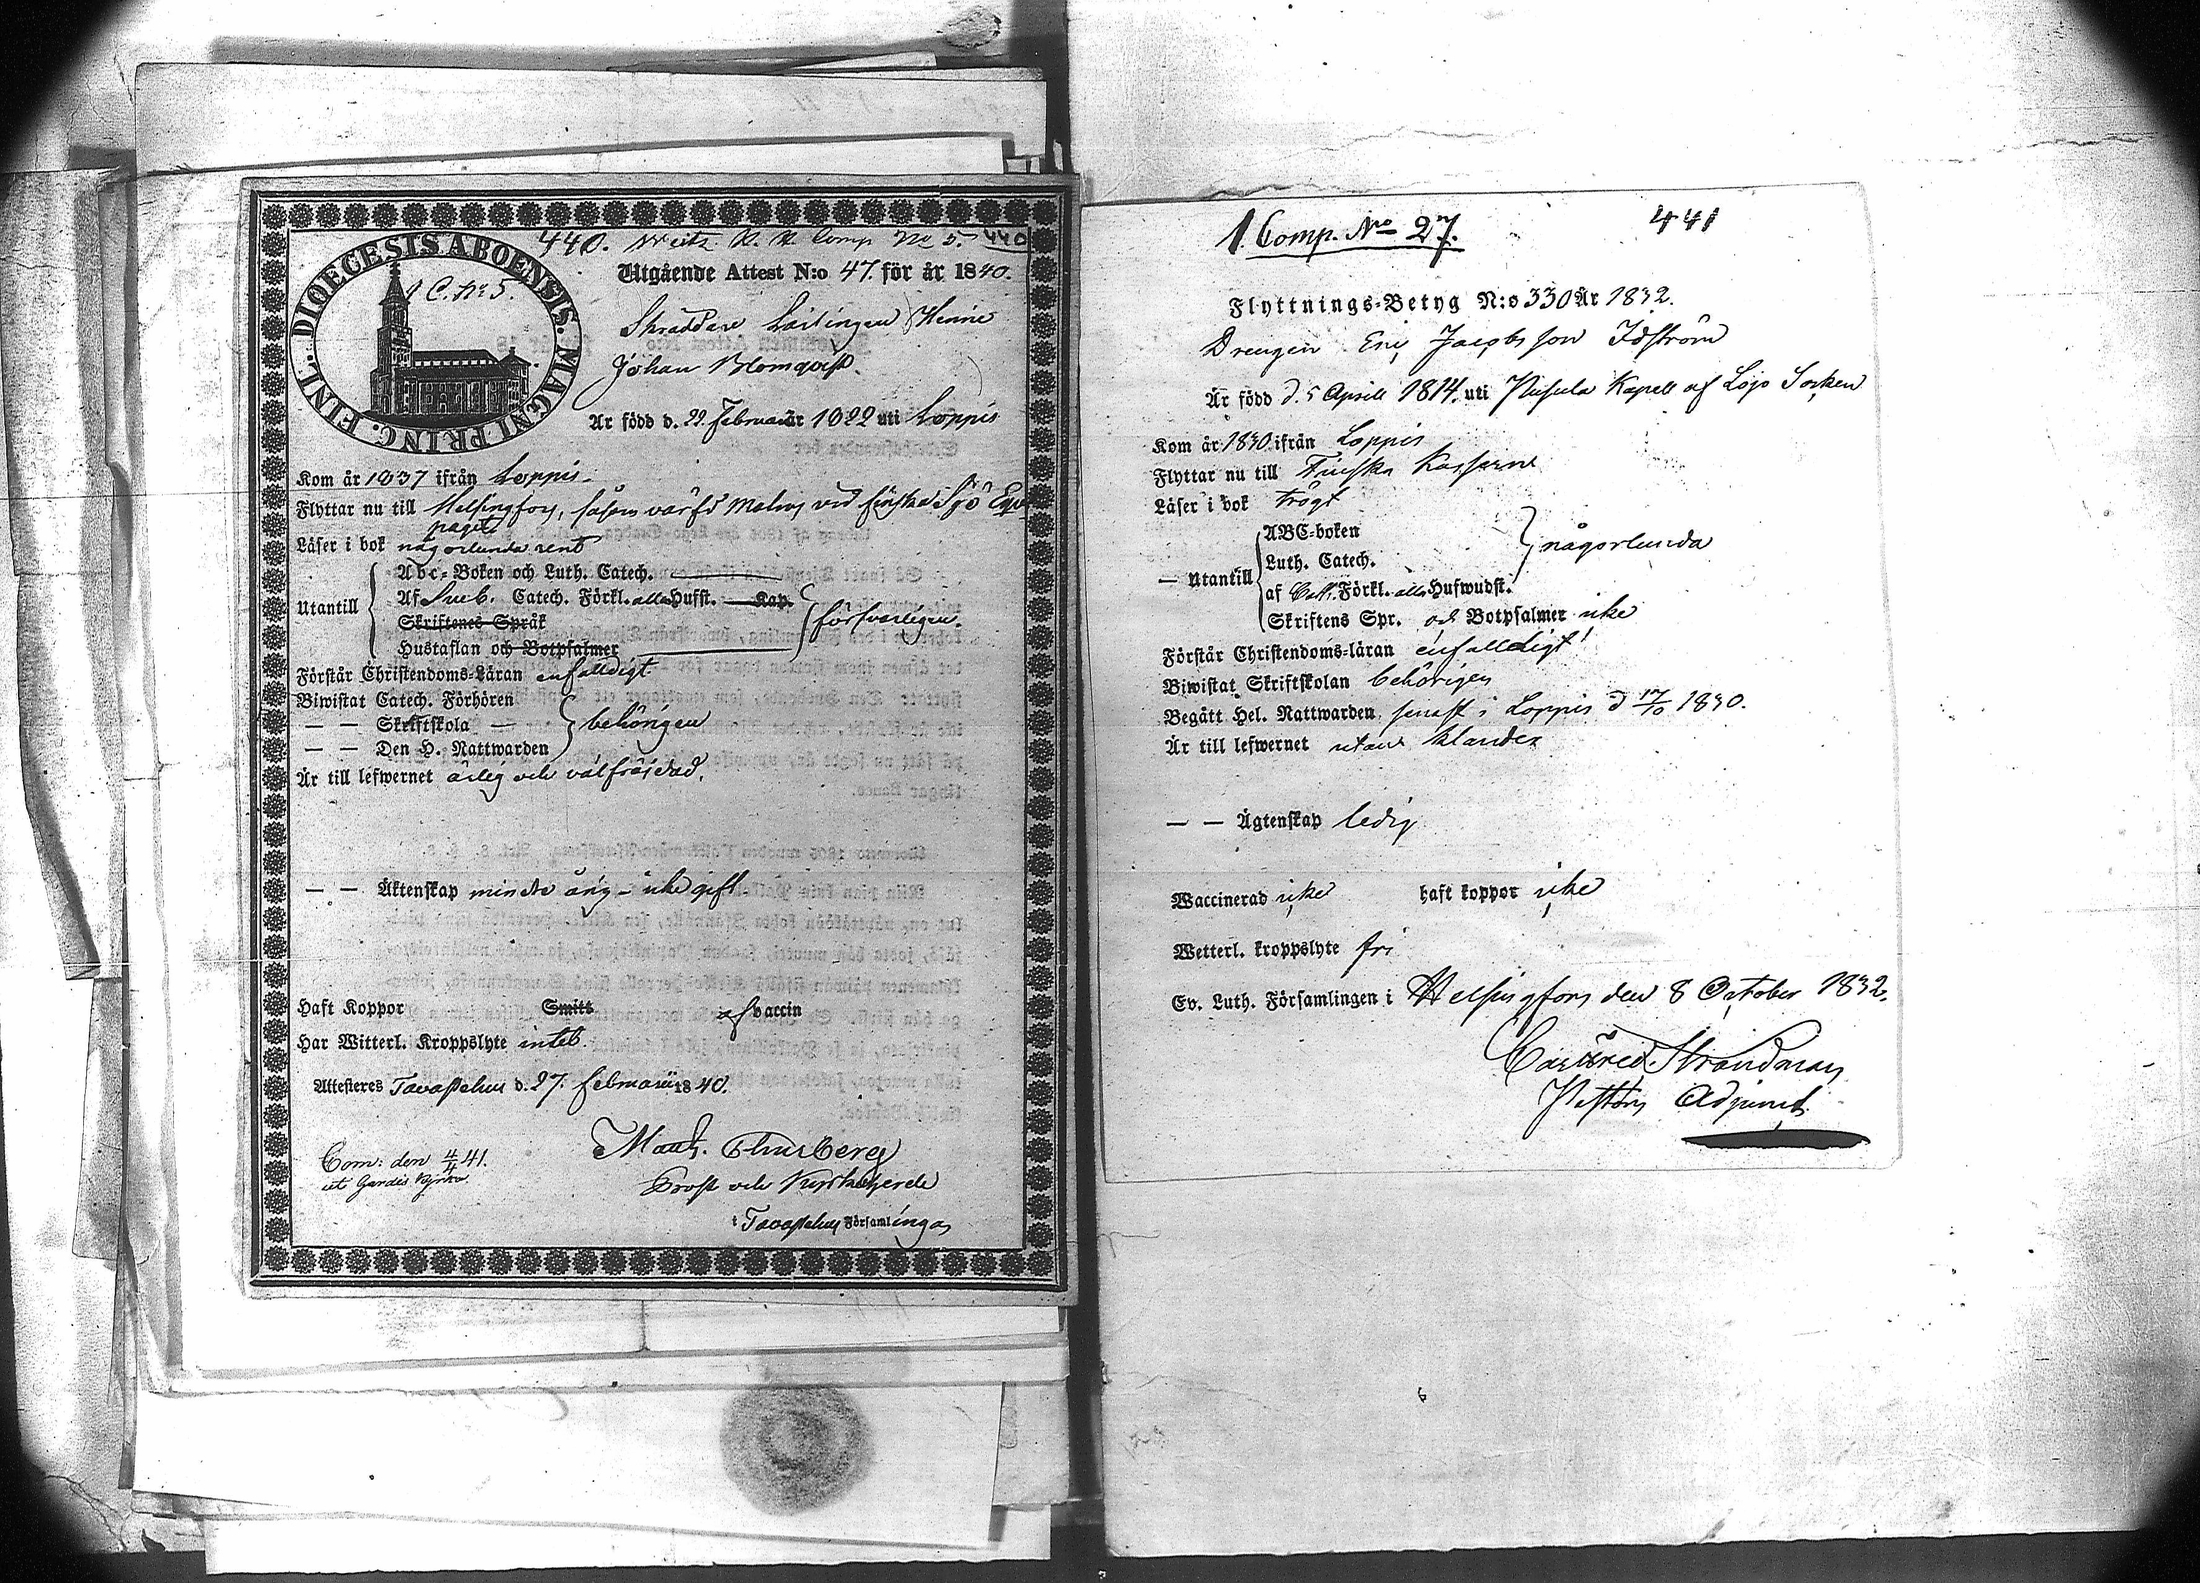 440. Comp No 5. 440
DIOECESIS ABOENSIS. MAGNI PRINC. FINL.
1 C. No 5.
Utgående Attest N:o 47. för år 1840.
Skräddare Lärlingen Henric
Johan Blomqvist.
Är född d. 22 Februarii år 1822 uti Loppis
Kom år 1837 ifrån Loppis.
Flyttar nu till Helsingfors, såsom värfd Matros vid finska Sjö Equi
paget
Läser i bok någorlunda rent
Abc-Boken och Luth. Catech.
Utantill Af Sveb. Catech. Förkl. alla Hufst. Kap.
Skriftenes Språk
Hustaflan och Botpsalmer
försvarligen.
Förstår Christendoms-Läran enfaldigt
Biwistat Catech. Förhören
— — Skriftskola —
— — Den H. Nattwarden
behörigen
Är till lefwernet ärlig och välfräjdad.
— — Äktenskap minderårig – icke gift
Haft Koppor Smitt af vaccin
Har Witterl. Kroppslyte intet
Attesteres Tavastehus d. 27. Februarii 1840.
Com: den 4/4 41.
ut Gardes Kyrka
Prost och Kyrkoherde
i Tavastehus Församlingar
1 Comp. No 27. 441
Flyttnings-Betyg N:o 330 År 1832.
Drengen Eric Jacobsson Idström
Är född d. 5 Aprill 1814. uti Pusula Kapell af Lojo Socken
Kom år 1830 ifrån Loppis
Flyttar nu till Finska Kasserne
Läser i bok trögt
ABC-boken
Luth. Catech.
— Utantill
af Cat. Förkl. alla Hufwudst.
någorlunda
Skriftens Spr. och Botpsalmer icke
Förstår Christendoms-läran enfalldigt
Biwistat Skriftskolan behörigen
Begått Hel. Nattwarden senast i Loppis d 17/10 1830.
Är till lefwernet utan klander
— — Ägtenskap ledig
Waccinerad icke haft koppor icke
Wetterl. kroppslyte fri
Ev. Luth. Församlingen i Helsingfors den 8 October 1832.
Strandman
Pastors Adjunct.